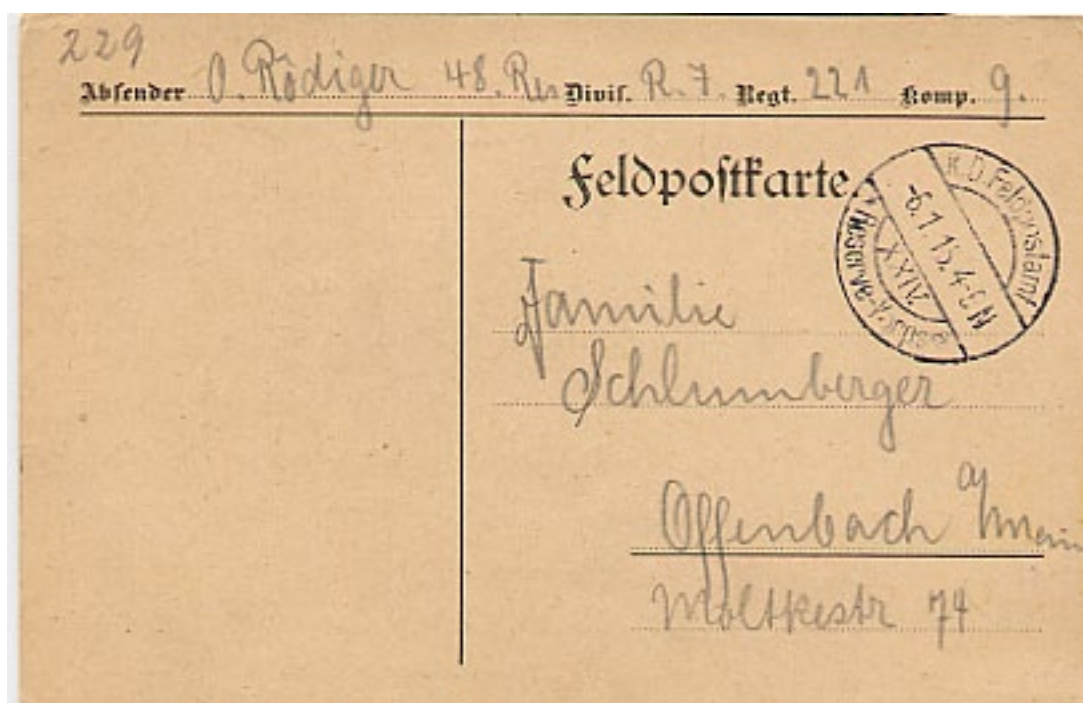 229
Absender O. Rödiger 48. Res Divis. R. 7. Regt. 221 Komp. 9.
Feldpostkarte.
K.D. Feldpostamt
-6.1.15. 4-5 N
XXIV
Reserve-Korps
Familie
Schlumberger
Offenbach a/Main
Moltkestr 74